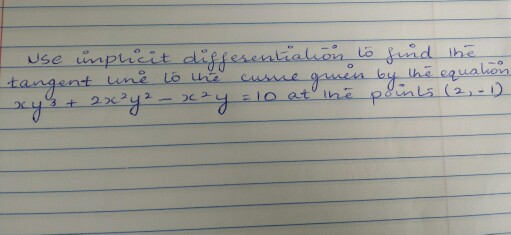 Use implicit differentiation to find the
tangent line to the curve given by the equation
xy³ + 2x²y² - x²y = 10 at the points (2, -1)